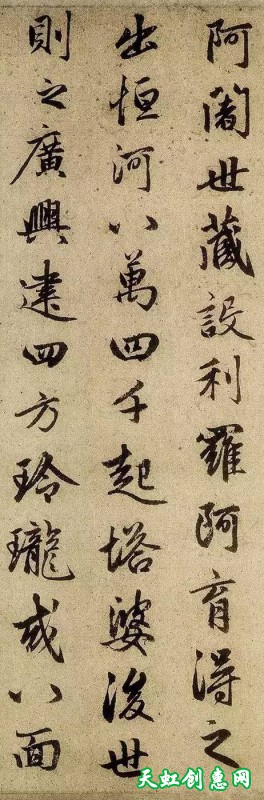 阿闍世藏設利羅阿育得之
出恒河八萬四千起塔婆後世
則之廣興建四方玲瓏或八面
天虹创意网